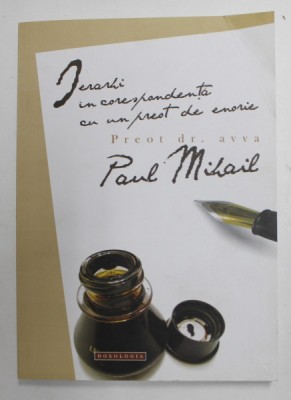 Ierarhi
in corespondență
cu un preot de enorie
Preot dr. avva
Paul Mihail
DOXOLOGIA